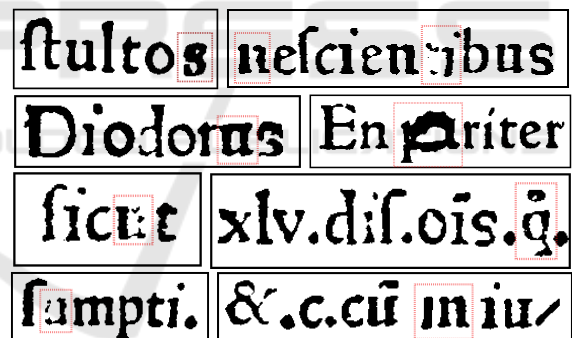 ſtultos neſcientibus
Diodorus En pariter
ſicut xlv.diſ.oīs.q̄.
ſumpti. &.c.cū in iu⸗